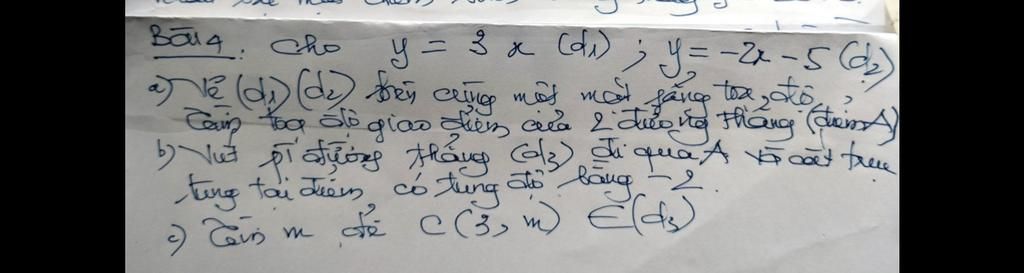 Bài 4. Cho y = 3x (d1) ; y = -2x - 5 (d2)
a) Vẽ (d1) (d2) trên cùng một mặt phẳng toạ độ,
Tìm toạ độ giao điểm của 2 đường thẳng (điểm A)
b) Viết pt đường thẳng (d3) đi qua A và cắt trục
tung tại điểm có tung độ bằng -2.
c) Tìm m để C(3, m) ∈ (d3)